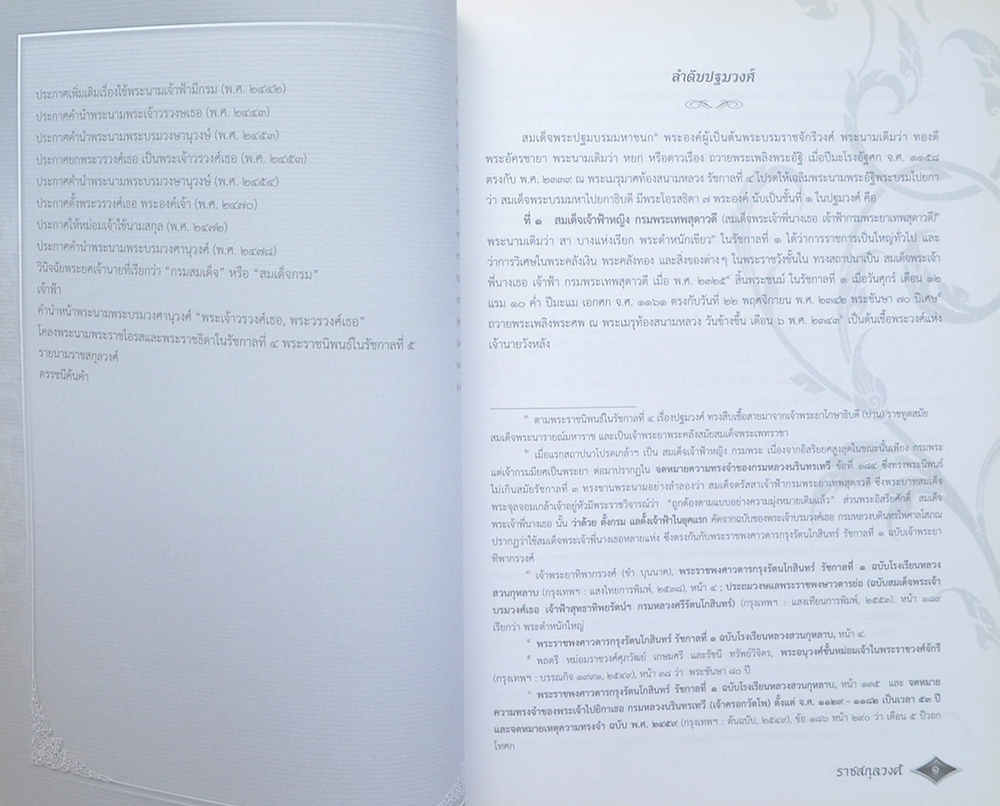 ประกาศเพิ่มเติมเรื่องใช้พระนามเจ้าฟ้ามีกรม (พ.ศ. ๒๔๔๒)
ประกาศคำนำพระนามพระเจ้าวรวงษเธอ (พ.ศ. ๒๔๔๓)
ประกาศคำนำพระนามพระบรมวงษานุวงษ์ (พ.ศ. ๒๔๕๓)
ประกาศยกพระวรวงศ์เธอ เป็นพระเจ้าวรวงศ์เธอ (พ.ศ. ๒๔๕๓)
ประกาศคำนำพระนามพระบรมวงษานุวงษ์ (พ.ศ. ๒๔๕๔)
ประกาศตั้งพระวรวงศ์เธอ พระองค์เจ้า (พ.ศ. ๒๔๗๐)
ประกาศให้หม่อมเจ้าใช้นามสกุล (พ.ศ. ๒๔๗๒)
ประกาศคำนำพระนามพระบรมวงศานุวงศ์ (พ.ศ. ๒๔๗๘)
วินิจฉัยพระยศเจ้านายที่เรียกว่า “กรมสมเด็จ” หรือ “สมเด็จกรม”
เจ้าฟ้า
คำนำหน้าพระนามพระบรมวงศานุวงศ์ “พระเจ้าวรวงศ์เธอ, พระวรวงศ์เธอ”
โคลงพระนามพระราชโอรสและพระราชธิดาในรัชกาลที่ ๔ พระราชนิพนธ์ในรัชกาลที่ ๕
รายนามราชสกุลวงศ์
ดรรชนีค้นคำ
ลำดับปฐมวงศ์
สมเด็จพระปฐมบรมมหาชนก๑ พระองค์ผู้เป็นต้นพระบรมราชจักรีวงศ์ พระนามเดิมว่า ทองดี
พระอัครชายา พระนามเดิมว่า หยก หรือดาวเรือง ถวายพระเพลิงพระอัฐิ เมื่อปีมะโรงอัฐศก จ.ศ. ๑๑๕๘
ตรงกับ พ.ศ. ๒๓๓๙ ณ พระเมรุมาศท้องสนามหลวง รัชกาลที่ ๔ โปรดให้เฉลิมพระนามพระอัฐิพระบรมไปยกา
ว่า สมเด็จพระบรมมหาไปยกาธิบดี มีพระโอรสธิดา ๗ พระองค์ นับเป็นชั้นที่ ๑ ในปฐมวงศ์ คือ
ที่ ๑ สมเด็จเจ้าฟ้าหญิง กรมพระเทพสุดาวดี (สมเด็จพระเจ้าพี่นางเธอ เจ้าฟ้ากรมพระยาเทพสุดาวดี)๒
พระนามเดิมว่า สา บางแห่งเรียก พระตำหนักเขียว๓ ในรัชกาลที่ ๑ ได้ว่าการราชการเป็นใหญ่ทั่วไป และ
ว่าการวิเศษในพระคลังเงิน พระคลังทอง และสิ่งของต่างๆ ในพระราชวังชั้นใน ทรงสถาปนาเป็น สมเด็จพระเจ้า
พี่นางเธอ เจ้าฟ้า กรมพระเทพสุดาวดี เมื่อ พ.ศ. ๒๓๒๕๔ สิ้นพระชนม์ ในรัชกาลที่ ๑ เมื่อวันศุกร์ เดือน ๑๒
แรม ๑๐ ค่ำ ปีมะแม เอกศก จ.ศ. ๑๑๖๑ ตรงกับวันที่ ๒๒ พฤศจิกายน พ.ศ. ๒๓๔๒ พระชันษา ๗๐ ปีเศษ๕
ถวายพระเพลิงพระศพ ณ พระเมรุท้องสนามหลวง วันข้างขึ้น เดือน ๖ พ.ศ. ๒๓๔๓๖ เป็นต้นเชื้อพระวงศ์แห่ง
เจ้านายวังหลัง
๑ ตามพระราชนิพนธ์ในรัชกาลที่ ๔ เรื่องปฐมวงศ์ ทรงสืบเชื้อสายมาจากเจ้าพระยาโกษาธิบดี (ปาน) ราชทูตสมัย
สมเด็จพระนารายณ์มหาราช และเป็นเจ้าพระยาพระคลังสมัยสมเด็จพระเพทราชา
๒ เมื่อแรกสถาปนาโปรดเกล้าฯ เป็น สมเด็จเจ้าฟ้าหญิง กรมพระ เนื่องจากอิสริยยศสูงสุดในขณะนั้นเพียง กรมพระ
แต่เจ้ากรมมียศเป็นพระยา ต่อมาปรากฏใน จดหมายความทรงจำของกรมหลวงนรินทรเทวี ข้อที่ ๑๘๔ ซึ่งทรงพระนิพนธ์
ไม่เกินสมัยรัชกาลที่ ๓ ทรงขานพระนามอย่างลำลองว่า สมเด็จตรัสสาเจ้าฟ้ากรมพระยาเทพสุดาวดี ซึ่งพระบาทสมเด็จ
พระจุลจอมเกล้าเจ้าอยู่หัวมีพระราชวิจารณ์ว่า “ถูกต้องตามแบบอย่างความมุ่งหมายเดิมแล้ว” ส่วนพระอิสริยศักดิ์ สมเด็จ
พระเจ้าพี่นางเธอ นั้น ว่าด้วย ตั้งกรม แลตั้งเจ้าฟ้าในยุคแรก คัดจากฉบับของพระเจ้าบรมวงศ์เธอ กรมหลวงบดินทรไพศาลโสภณ
ปรากฏว่าใช้สมเด็จพระเจ้าพี่นางเธอหลายแห่ง ซึ่งตรงกันกับพระราชพงศาวดารกรุงรัตนโกสินทร์ รัชกาลที่ ๑ ฉบับเจ้าพระยา
ทิพากรวงศ์
๓ เจ้าพระยาทิพากรวงศ์ (ขำ บุนนาค), พระราชพงศาวดารกรุงรัตนโกสินทร์ รัชกาลที่ ๑ ฉบับโรงเรียนหลวง
สวนกุหลาบ (กรุงเทพฯ : แสงไทยการพิมพ์, ๒๕๓๘), หน้า ๔ ; ประถมวงษแลพระราชพงษาวดารย่อ (ฉบับสมเด็จพระเจ้า
บรมวงศ์เธอ เจ้าฟ้าสุทธาทิพยรัตน์ฯ กรมหลวงศรีรัตนโกสินทร์) (กรุงเทพฯ : แสงเทียนการพิมพ์, ๒๕๕๓), หน้า ๑๘๙
เรียกว่า พระตำหนักใหญ่
๔ พระราชพงศาวดารกรุงรัตนโกสินทร์ รัชกาลที่ ๑ ฉบับโรงเรียนหลวงสวนกุหลาบ, หน้า ๔.
๕ พลตรี หม่อมราชวงศ์ศุภวัฒย์ เกษมศรี และรัชนี ทรัพย์วิจิตร, พระอนุวงศ์ชั้นหม่อมเจ้าในพระราชวงศ์จักรี
(กรุงเทพฯ : บรรณกิจ ๑๙๙๑, ๒๕๔๙), หน้า ๓๘ ว่า พระชันษา ๘๐ ปี
๖ พระราชพงศาวดารกรุงรัตนโกสินทร์ รัชกาลที่ ๑ ฉบับโรงเรียนหลวงสวนกุหลาบ, หน้า ๑๓๕ และ จดหมาย
ความทรงจำของพระเจ้าไปยิกาเธอ กรมหลวงนรินทรเทวี (เจ้าครอกวัดโพ) ตั้งแต่ จ.ศ. ๑๑๒๙ - ๑๑๘๒ เป็นเวลา ๕๓ ปี
และจดหมายเหตุความทรงจำ ฉบับ พ.ศ. ๒๔๕๙ (กรุงเทพฯ : ต้นฉบับ, ๒๕๔๙), ข้อ ๑๘๖ หน้า ๒๙๐ ว่า เดือน ๕ ปีวอก
โทศก
ราชสกุลวงศ์ ๑